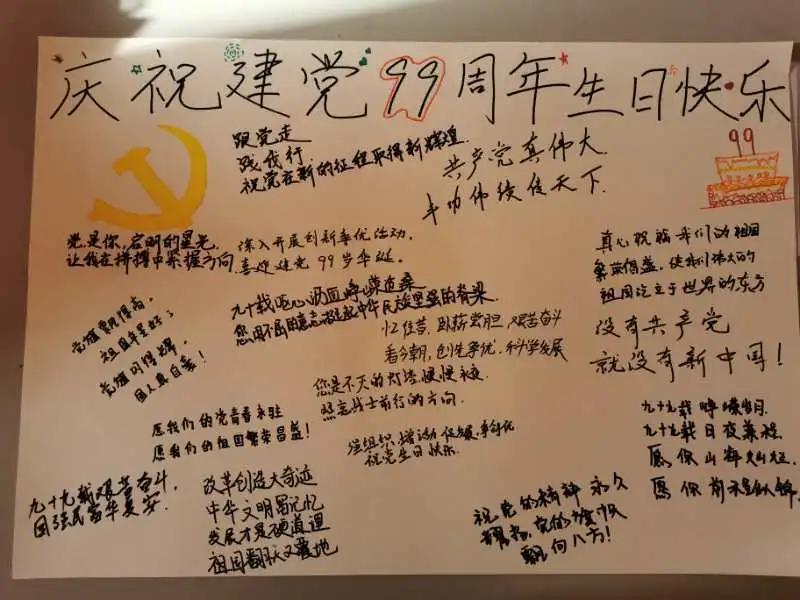 庆祝建党99周年生日快乐
跟党走
践我行
祝党在新的征程取得新辉煌
共产党真伟大
丰功伟绩传天下
99
党是你,启明的星光
让我在拼搏中掌握方向
深入开展创新争优活动,
喜迎建党99岁华诞。
真心祝福我们的祖国
繁荣昌盛,使我们伟大的
祖国屹立于世界的东方
九十载呕心沥血
您用不屈的意志 中华民族坚强的脊梁
忆往昔,卧薪尝胆,艰苦奋斗
看今朝,创先争优,科学发展
没有共产党
就没有新中国!
党旗飘得高,
祖国年年好;
党旗闪得耀,
国人真自豪!
您是不灭的灯塔,
照亮战士前行的方向.
愿我们的党青春永驻
愿我们的祖国繁荣昌盛!
强组织 增活动 促发展 争行
祝党生日快乐.
九十九载峥嵘岁月
九十九载日夜兼程
愿你山海灿烂
愿你前程似锦
九十九载艰苦奋斗,
国强民富华夏安.
改革创造大奇迹
中华文明留记忆
发展才是硬道理
祖国翻天又覆地
祝党的精神永久
飘向八方!